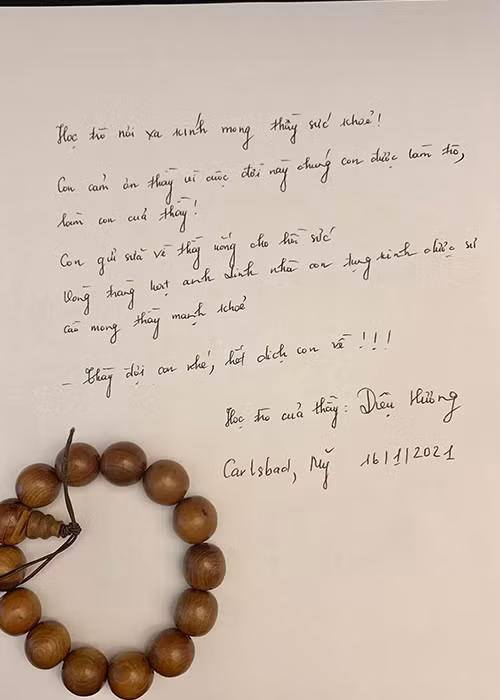 Học trò nơi xa kính mong thầy sức khoẻ!
Con cảm ơn thầy vì cuộc đời này chúng con được làm trò,
làm con của thầy!
Con gửi sữa về thầy uống cho lại sức
Vòng tràng hạt anh Linh nhà con tụng kinh dược sư
cầu mong thầy mạnh khoẻ
- Thầy đợi con nhé, hết dịch con về!!!
Học trò của thầy: Diệu Hương
Carlsbad, Mỹ 16/1/2021